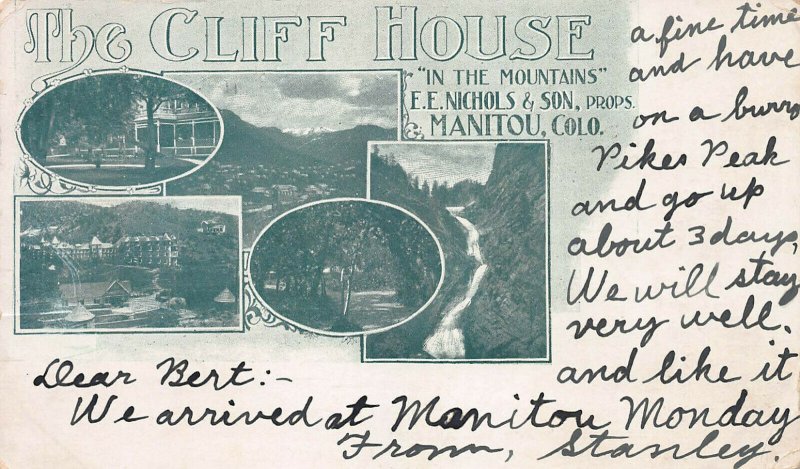 The CLIFF HOUSE
"IN THE MOUNTAINS"
E.E. NICHOLS & SON, PROPS.
MANITOU, COLO.
Dear Bert:-
We arrived at Manitou Monday
and like it
very well.
We will stay
about 3 days,
and go up
Pikes Peak
on a burro
and have
a fine time
From, Stanley.